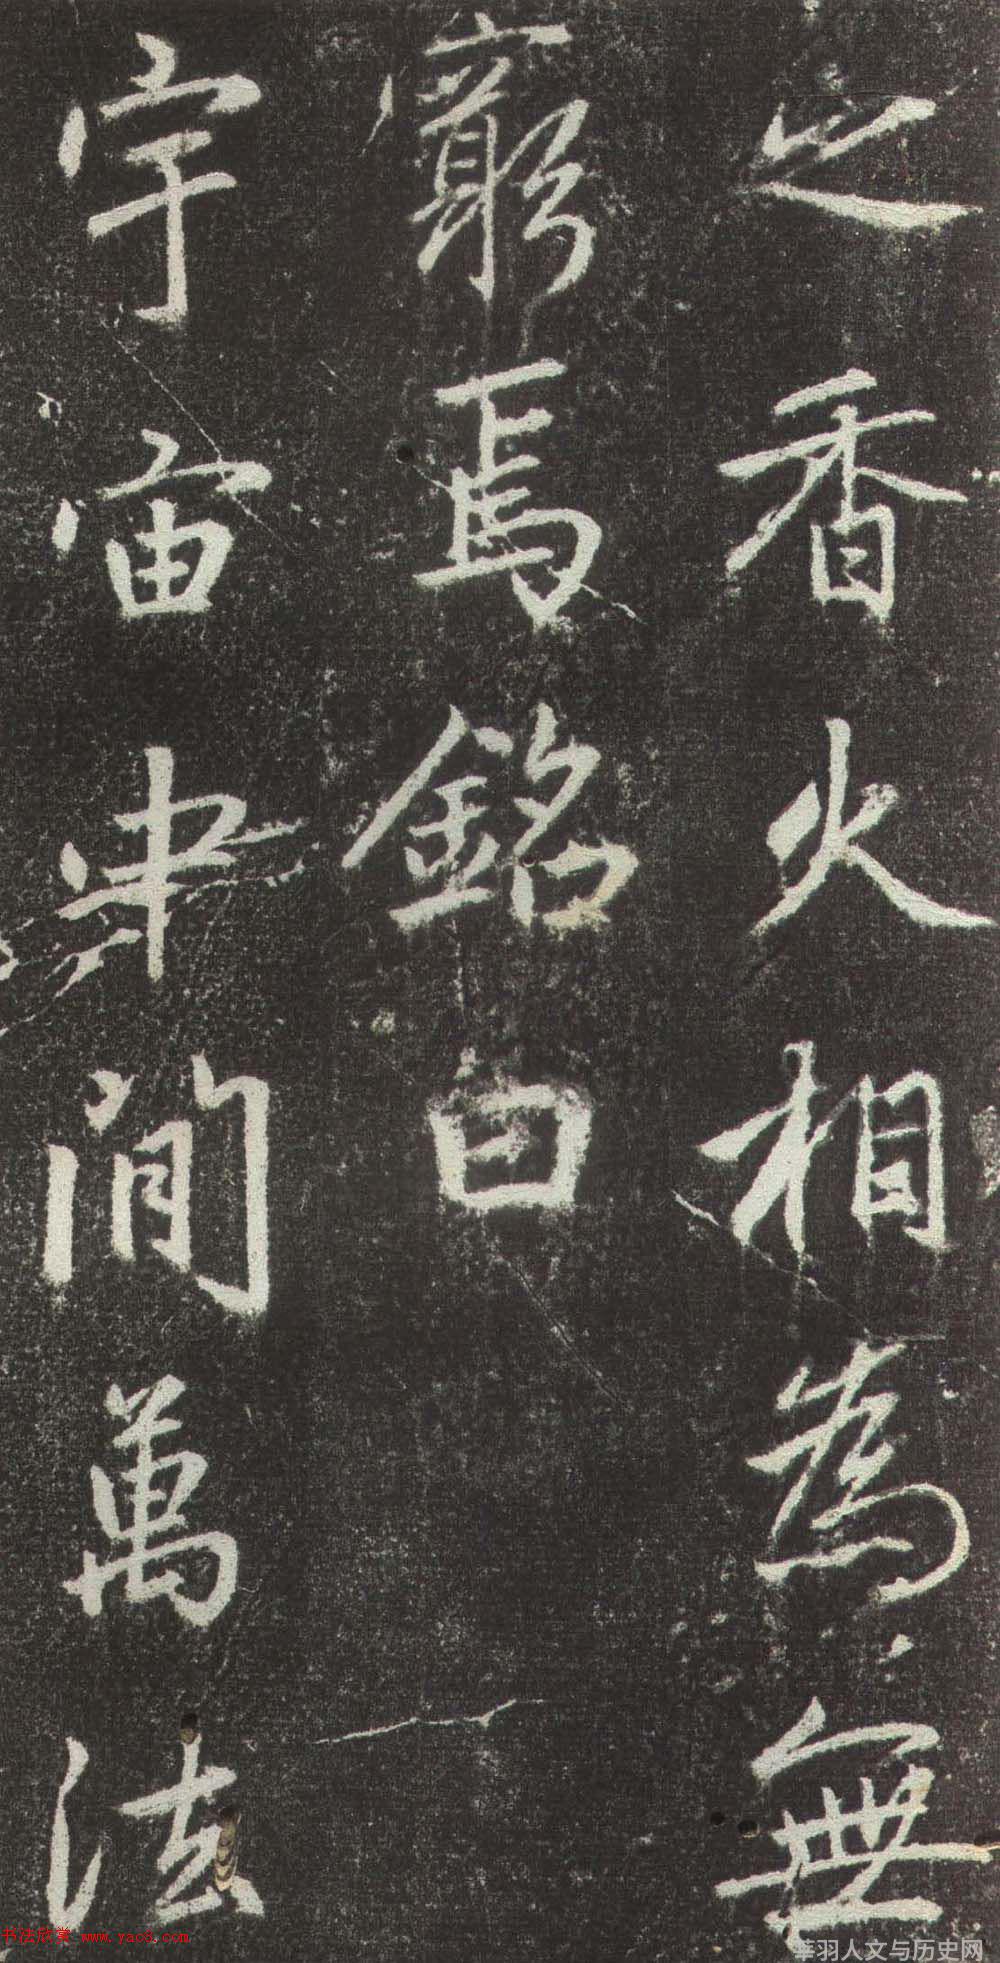 之香火相為無
窮焉銘曰
宇宙中間萬法
书法欣赏 www.yac8.com
華羽人文与历史网